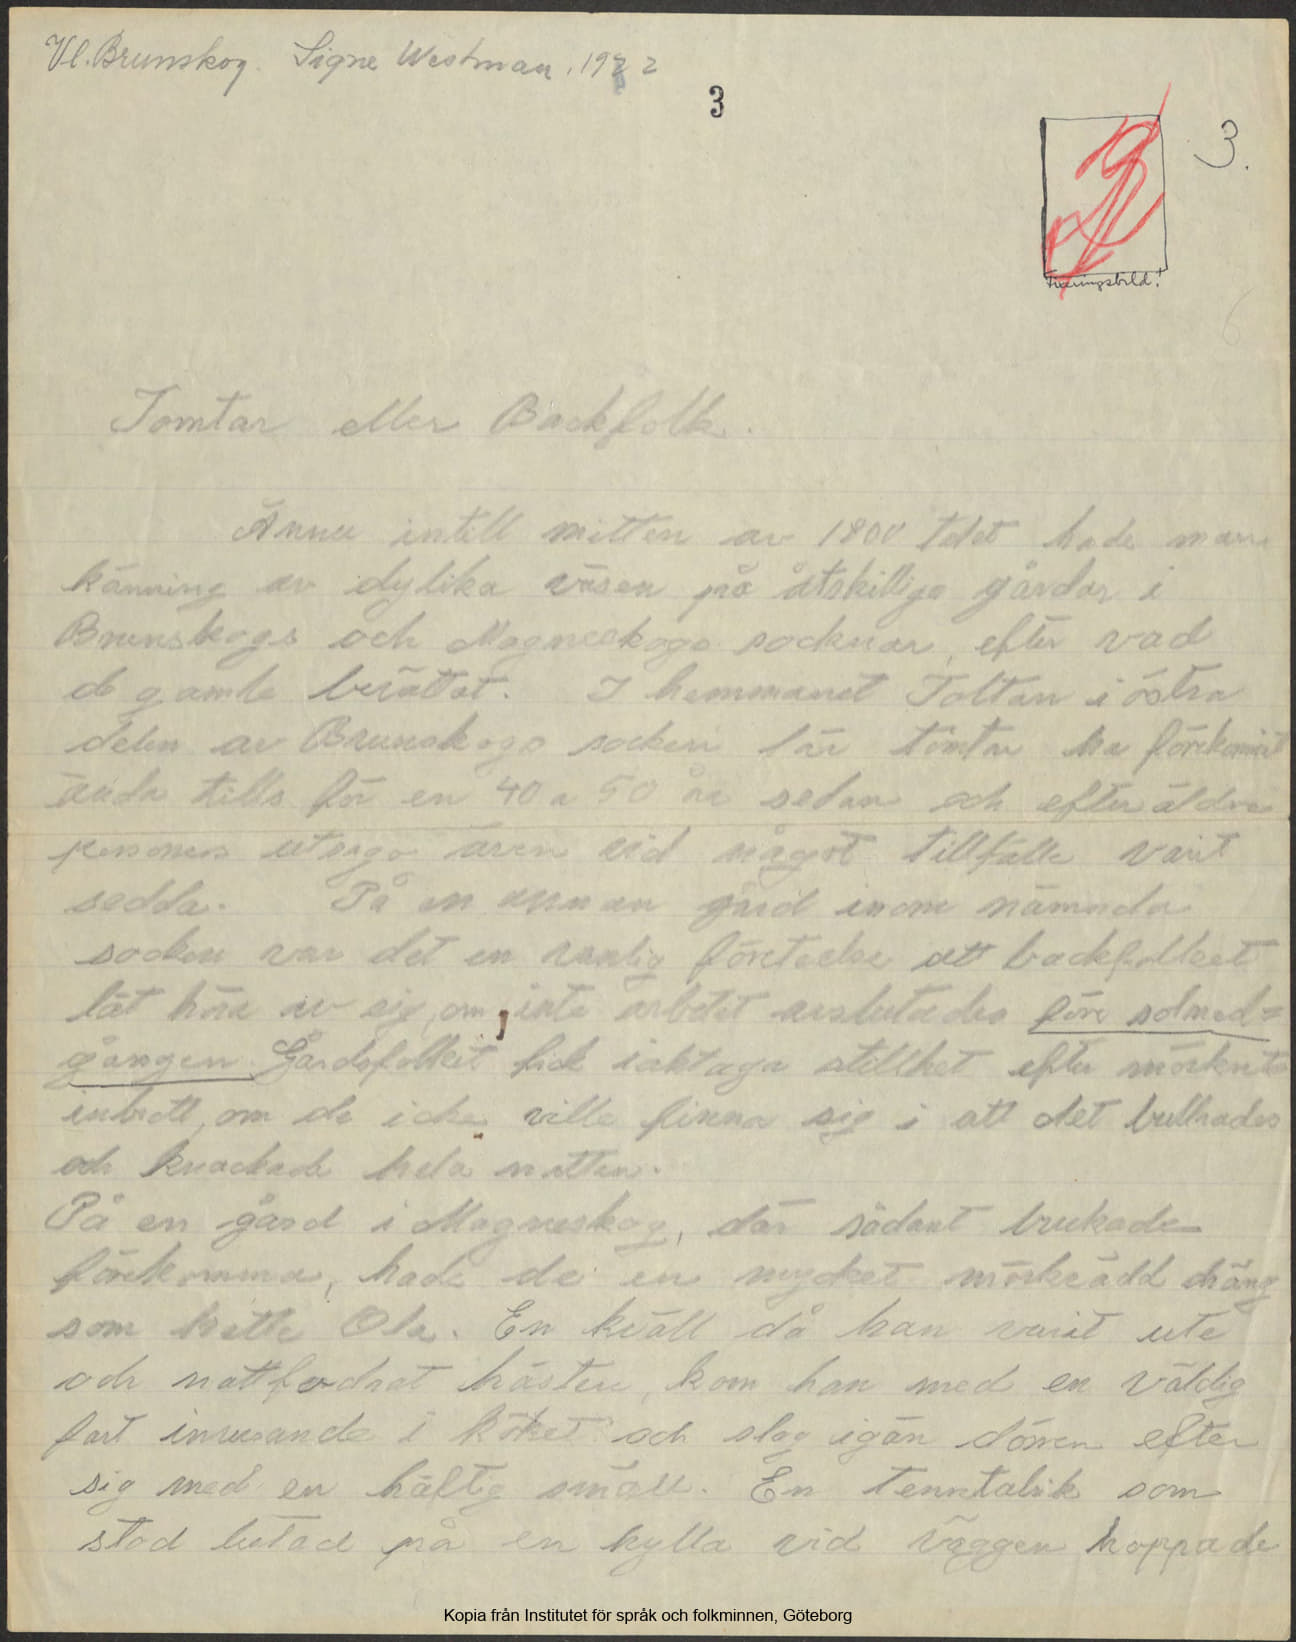 Vl. Brunskog. Signe Westman, 1922
3
3.
Tomtar eller Backfolk.
Ännu intill mitten av 1800 talet hade man
känning av dylika väsen på åtskilliga gårdar i
Brunskogs och Magneskogs socknar, efter vad
de gamle berättat. I hemmanet Toltan i östra
delen av Brunskogs socken lär tomtar ha förekommit
ända tills för en 40 a 50 år sedan och efter äldre
personers utsago även vid något tillfälle varit
sedda. På en annan gård inom nämnda
socken var det en vanlig företeelse att backfolket
lät höra av sig, om inte arbetet avslutades före solned=
gången. Gårdsfolket fick iakttaga stillhet efter mörkrets
inbrott, om de icke ville finna sig i att det bullrades
och knackade hela natten.
På en gård i Magneskog, där sådant brukade
förekomma, hade de en mycket mörkrädd dräng
som hette Ola. En kväll då han varit ute
och nattfodrat hästen, kom han med en väldig
fart inrusande i köket och slog igän dörren efter
sig med en häftig smäll. En tenntalrik som
stod lutad på en hylla vid väggen hoppade
Kopia från Institutet för språk och folkminnen, Göteborg